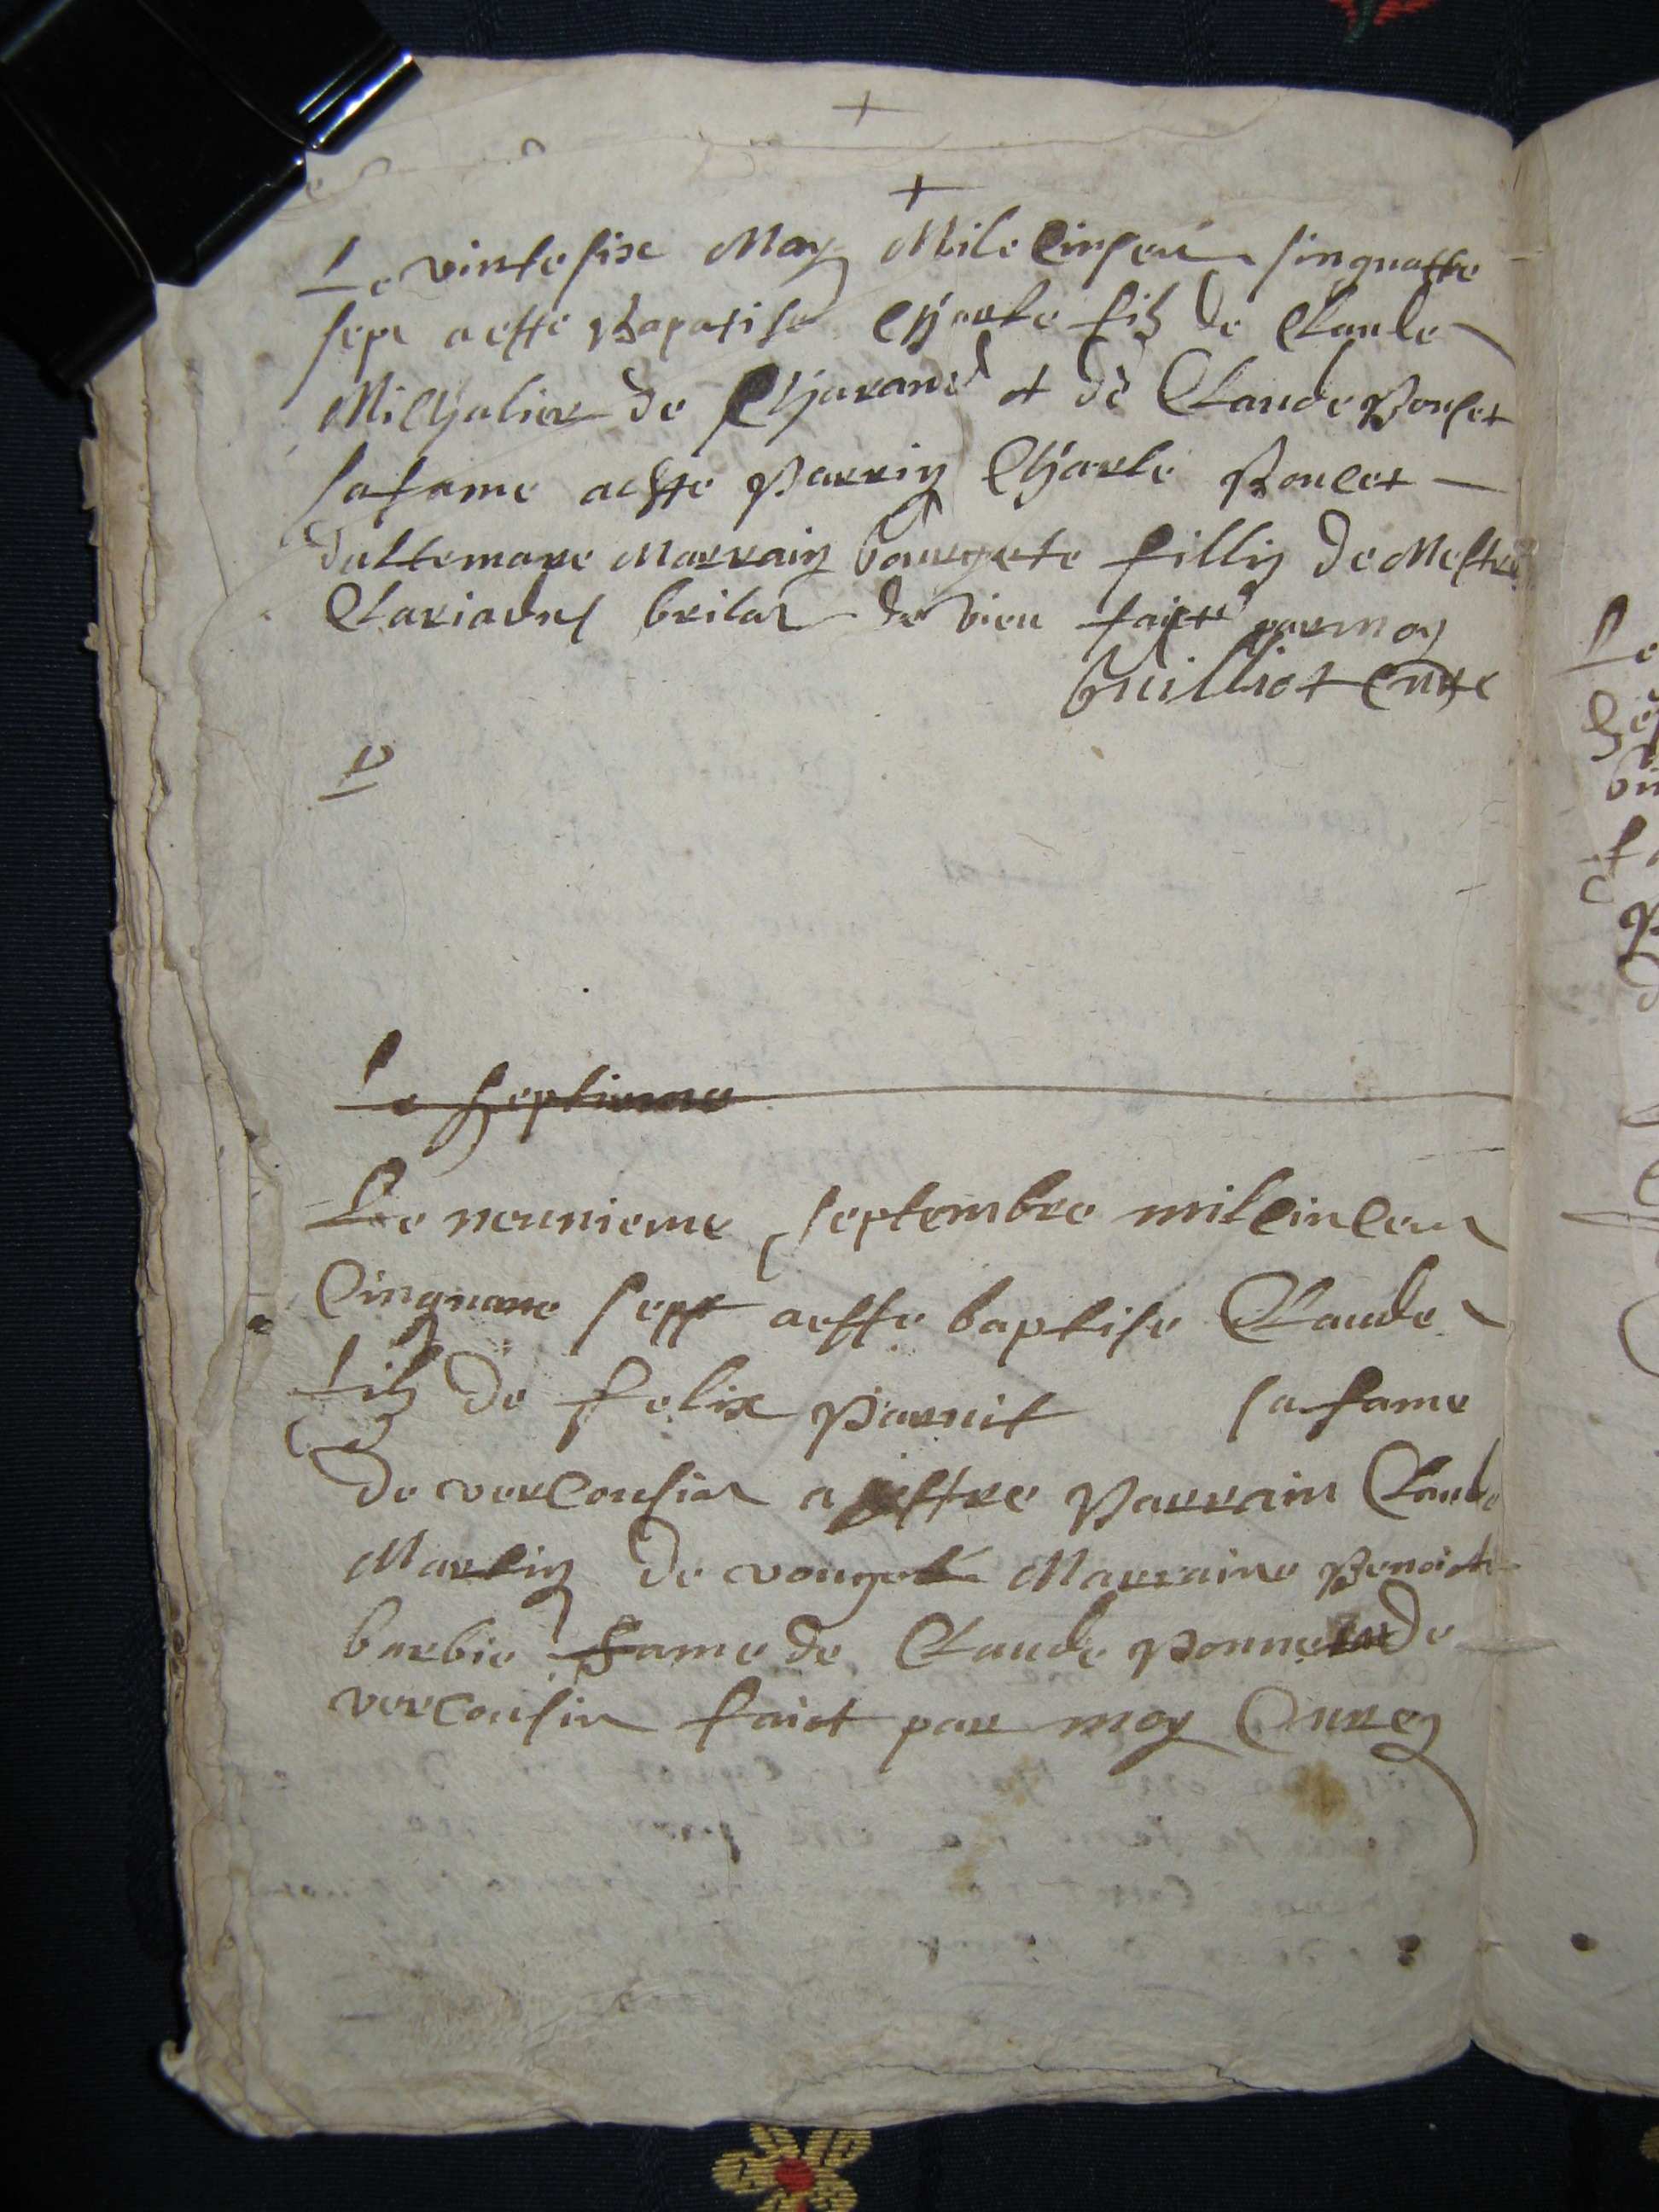 +
+
Le vinte six May Mile Cinsent singuatte
sept a este Bapatise Charle filz de Claude
Michalier de Charand et de Claude Ponset
sa fame a este Parrin Charle Poncet
daltemare Marrain bourgete fillin de Mestre
Clariadus brilat de vieu faicte par moy
Guilliot Cure
Le septieme
Le neunieme septembre mil cincens
Cinquane sept a este baptise Claude
filz de felix Parnit sa fame
de verCousin a estre Parrain Claude
Martin de vongele Marraine Benoicte
barbie fame de Claude de
verCousin faict par moy Curey